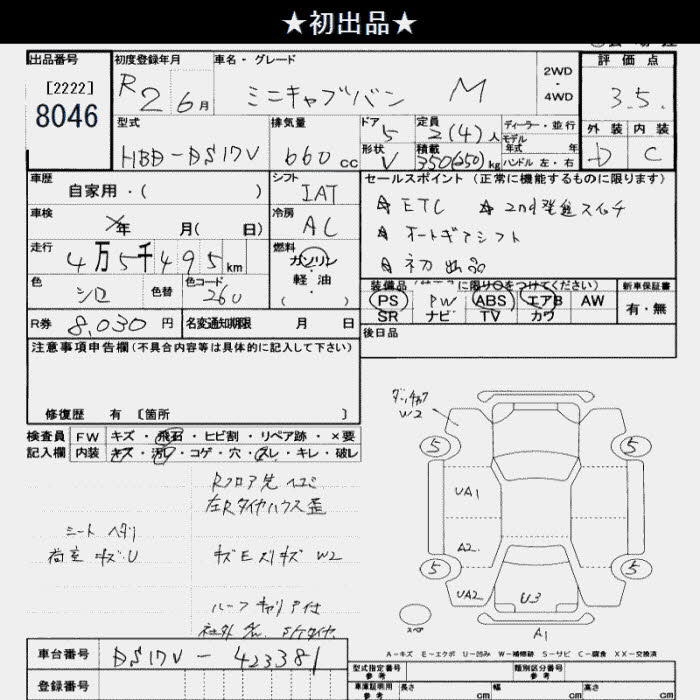 ★初出品★
出品番号 初度登録年月 車名・グレード 評価点
[2222]
8046
R2 6月 ミニキャブバン M 2WD・4WD 3.5
型式 排気量 ドア 5 定員 2(4)人 ディーラー・並行 外装 内装
HBD-DS17V 660cc 形状 V 積載 350(250)kg モデル年式 年 ハンドル 左・右 D C
車歴 自家用・( ) シフト IAT セールスポイント(正常に機能するものに限ります)
☆ETC ☆2nd発進スイッチ
車検 年 月( 日) 冷房 AC ☆オートギアシフト
走行 4万5千495km 燃料 ガソリン・軽油 ☆初出品
色 シロ 色替 色コード 260
装備品 に限り○をつけてください) 新車保証書
PS PW ABS エアB AW 有・無
SR ナビ TV カワ
R券 8,030円 名変通知期限 月 日 後日品
注意事項申告欄(不具合内容等は具体的に記入して下さい)
修復歴 有 〔箇所 〕
検査員 FW キズ・飛石・ヒビ割・リペア跡・×要
記入欄 内装 キズ・汚レ・コゲ・穴・スレ・キレ・破レ
W2
5 5
UA1
A2
5 5
UA2 U3
A1
スペア
Rフロア先 ヘコミ
左Rタイヤハウス歪
シート ヘタリ
荷室 キズ・U キズEズリキズ W2
ルーフキャリア付
A-キズ E-エクボ U-凹み W-補修跡 S-サビ C-腐食 XX-交換済
車台番号 DS17V-423381
登録番号
型式指定番号 参考 類別区分番号 参考
車庫証明用 参考 長さ cm 幅 cm 高さ cm